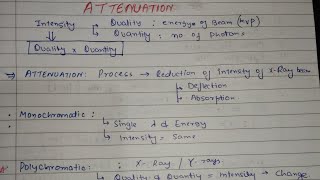 ATTENUATION
Intensity → Quality : energy of Beam (kvp)
→ Quantity : no of photons
Quality x Quantity
→ ATTENUATION: Process → Reduction of Intensity of X-Ray beam
→ Deflection
→ Absorption
• Monochromatic :
→ Single λ & Energy
→ Intensity = Same
Polychromatic : : X-Ray / γ-rays
→ Quality & Quantity = Intensity → Change